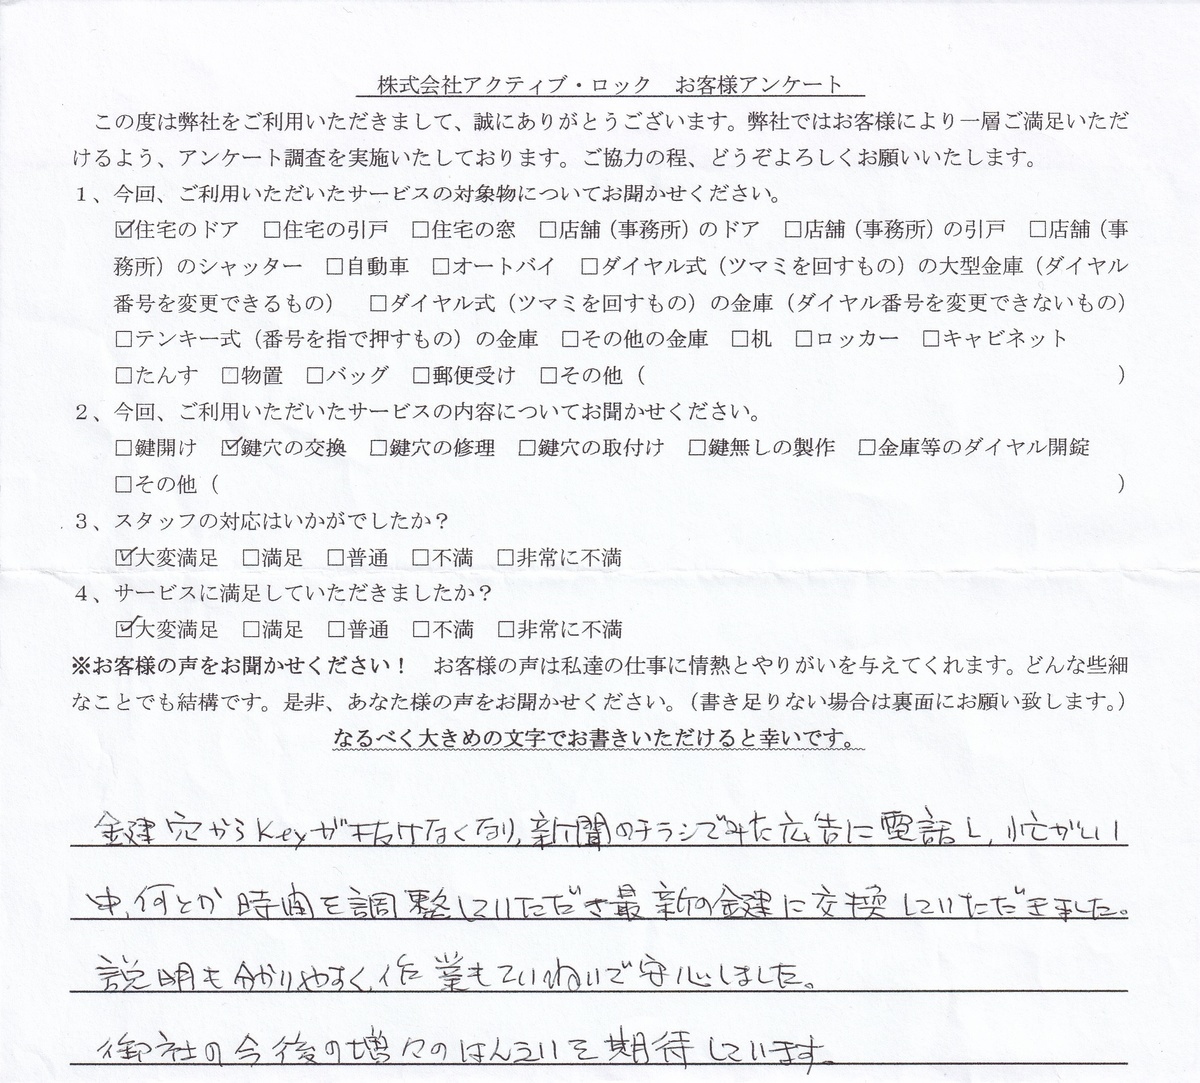 株式会社アクティブ・ロック　お客様アンケート
この度は弊社をご利用いただきまして、誠にありがとうございます。弊社ではお客様により一層ご満足いただ
けるよう、アンケート調査を実施いたしております。ご協力の程、どうぞよろしくお願いいたします。
１、今回、ご利用いただいたサービスの対象物についてお聞かせください。
☑住宅のドア　□住宅の引戸　□住宅の窓　□店舗（事務所）のドア　□店舗（事務所）の引戸　□店舗（事
務所）のシャッター　□自動車　□オートバイ　□ダイヤル式（ツマミを回すもの）の大型金庫（ダイヤル
番号を変更できるもの）　□ダイヤル式（ツマミを回すもの）の金庫（ダイヤル番号を変更できないもの）
□テンキー式（番号を指で押すもの）の金庫　□その他の金庫　□机　□ロッカー　□キャビネット
□たんす　□物置　□バッグ　□郵便受け　□その他（　　　）
２、今回、ご利用いただいたサービスの内容についてお聞かせください。
□鍵開け　☑鍵穴の交換　□鍵穴の修理　□鍵穴の取付け　□鍵無しの製作　□金庫等のダイヤル開錠
□その他（　　　）
３、スタッフの対応はいかがでしたか？
☑大変満足　□満足　□普通　□不満　□非常に不満
４、サービスに満足していただきましたか？
☑大変満足　□満足　□普通　□不満　□非常に不満
※お客様の声をお聞かせください！　お客様の声は私達の仕事に情熱とやりがいを与えてくれます。どんな些細
なことでも結構です。是非、あなた様の声をお聞かせください。（書き足りない場合は裏面にお願い致します。）
なるべく大きめの文字でお書きいただけると幸いです。
鍵穴からKeyが抜けなくなり、新聞のチラシでみた広告に電話し、忙がしい
中、何とか時間を調整していただき最新の鍵に交換していただきました。
説明も分かりやすく、作業もていねいで安心しました。
御社の今後の増々のはんえいを期待しています。